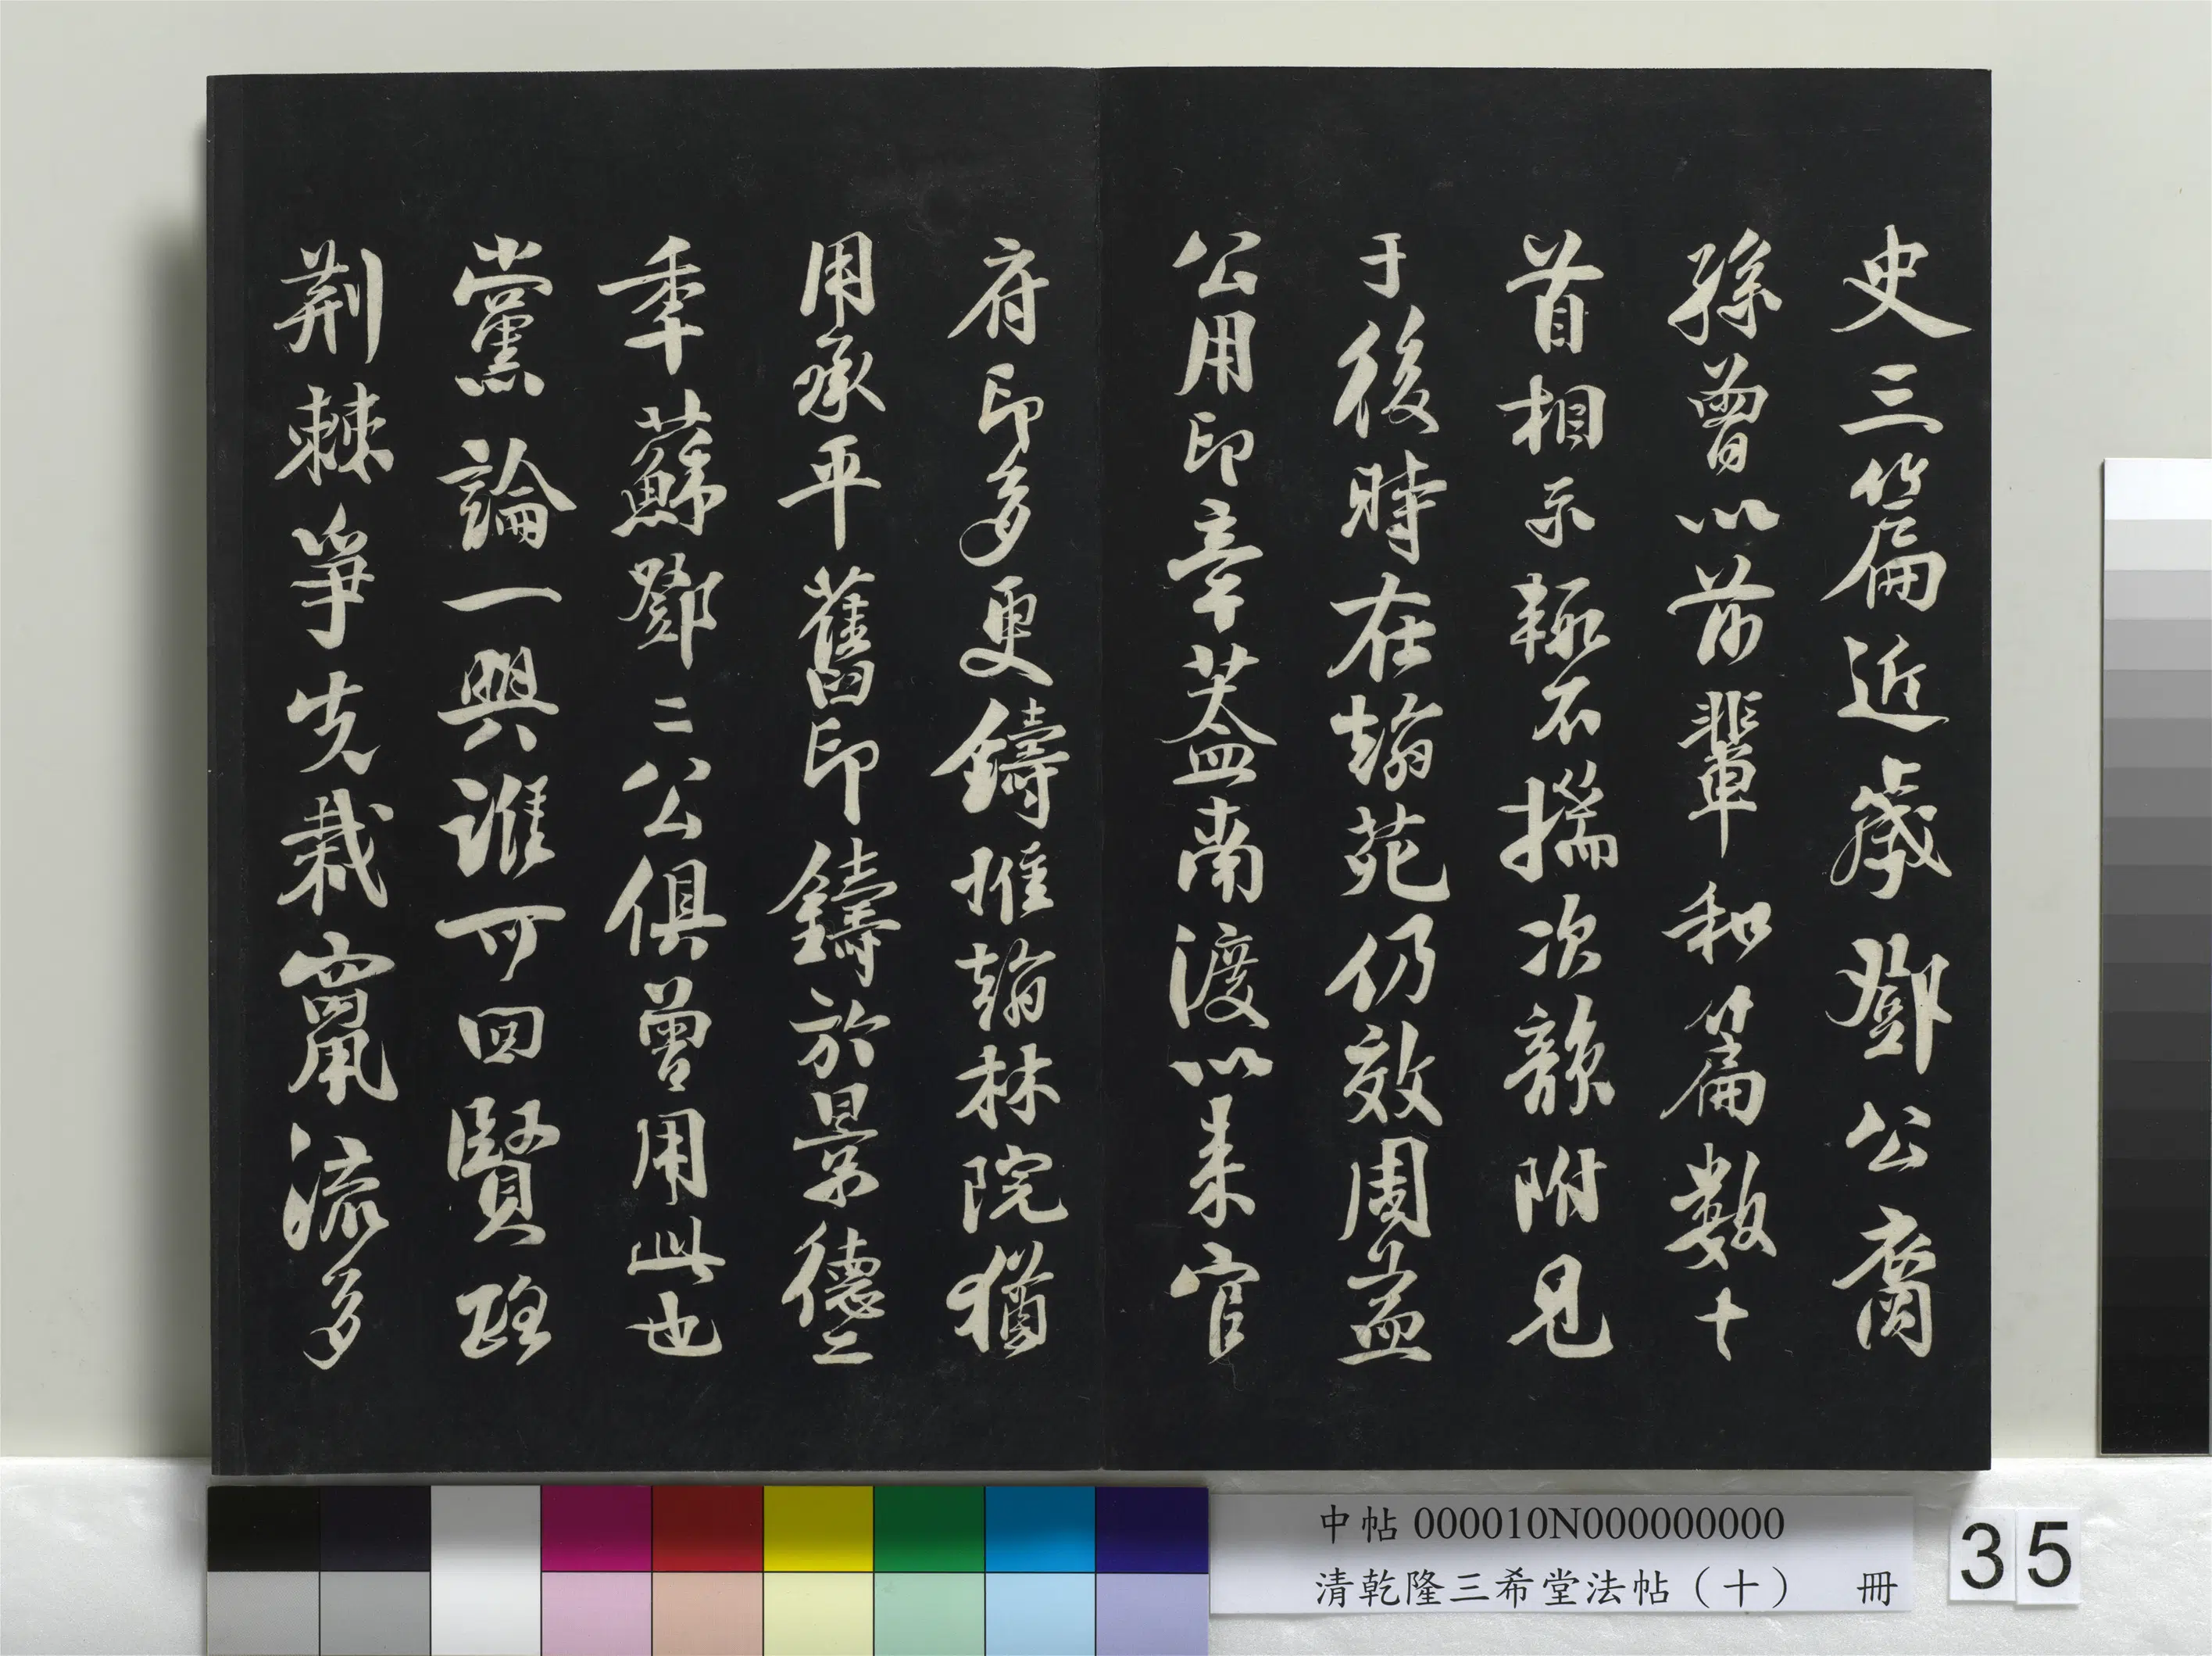 史三篇近歲鄧公裔
孫曾以前輩和篇數十
首相示輒不揣次韻附見
于後時在翰苑仍效周益
公用印章蓋南渡以來官
府印多更鑄惟翰林院猶
用承平舊印鑄於景德二
季蘇鄧二公俱曾用此也
黨論一興誰可回賢路
荆棘爭先栽竄流多
中帖 000010N000000000
清乾隆三希堂法帖（十） 冊
35